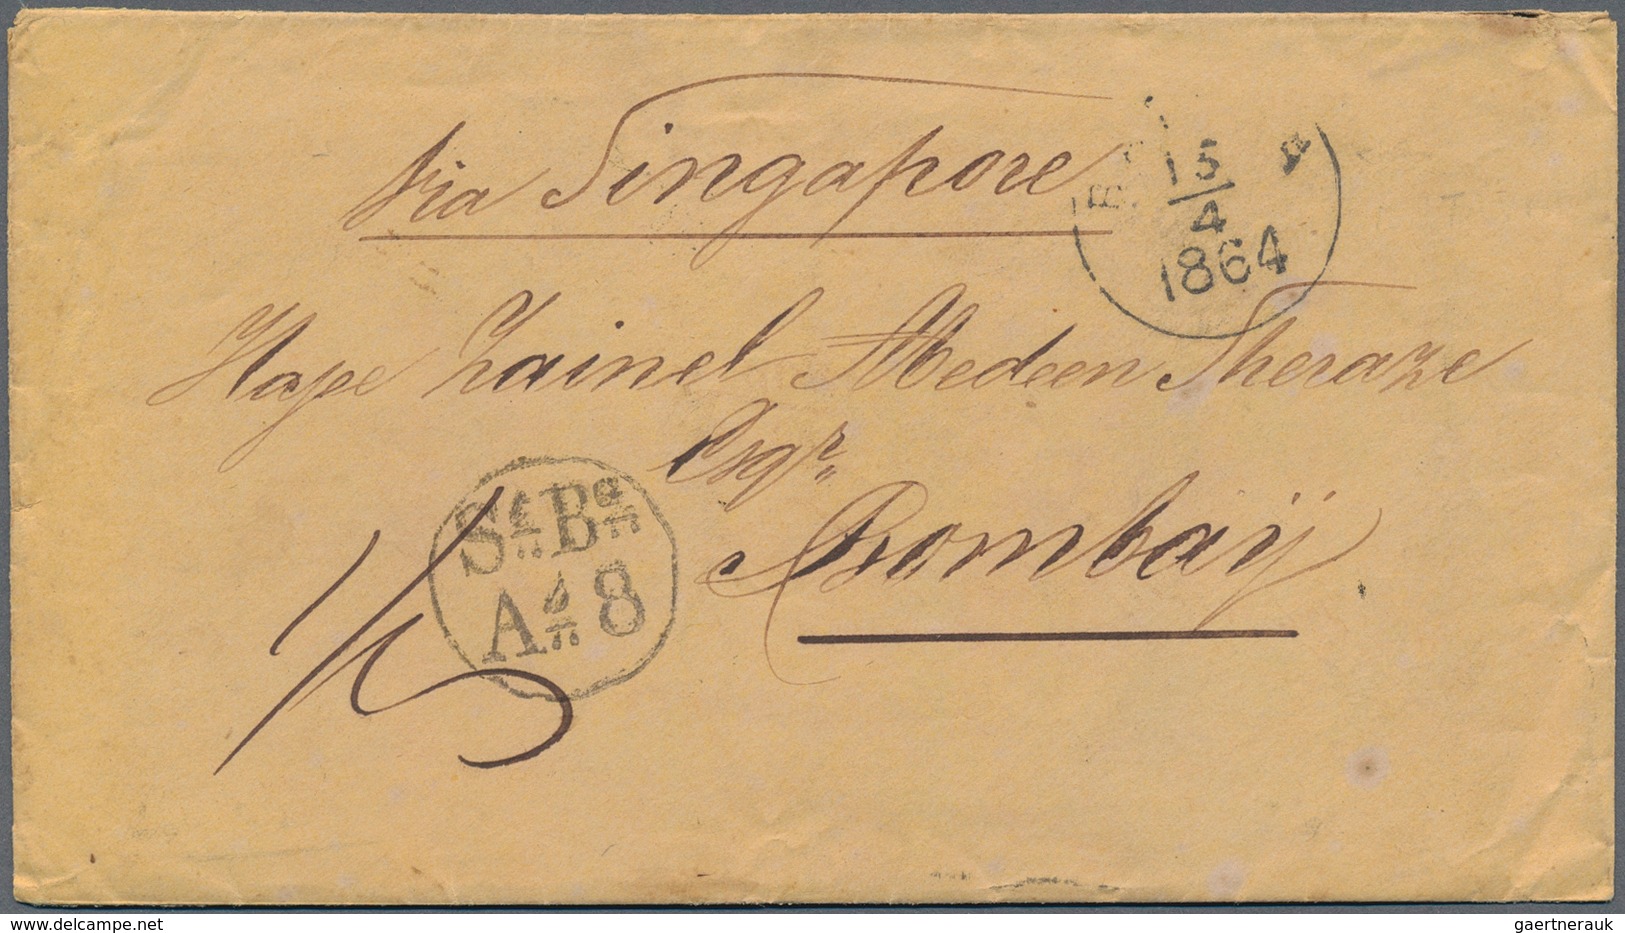 via Singapore
15
4
1864
Hape Zainel Abedeen Sheraze
Esqr
Bombaÿ
St. Bg.
A. 8
www.delcampe.net
gaertnerauk